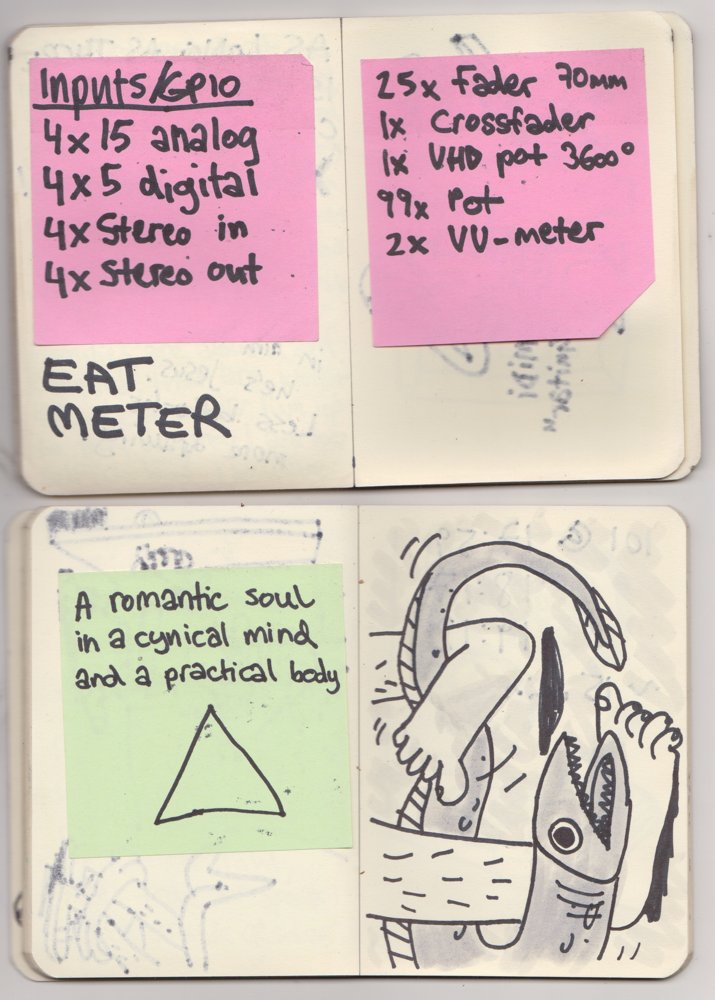 Inputs/GPIO
4x 15 analog
4x 5 digital
4x Stereo in
4x Stereo out
EAT
METER
25x Fader 70mm
1x Crossfader
1x VHD pot 3600°
99x Pot
2x VU-meter
A romantic soul
in a cynical mind
and a practical body